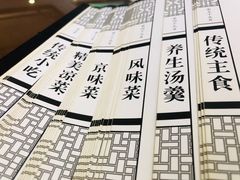 传统小吃
精美凉菜
京味菜
风味菜
养生汤羹
传统主食